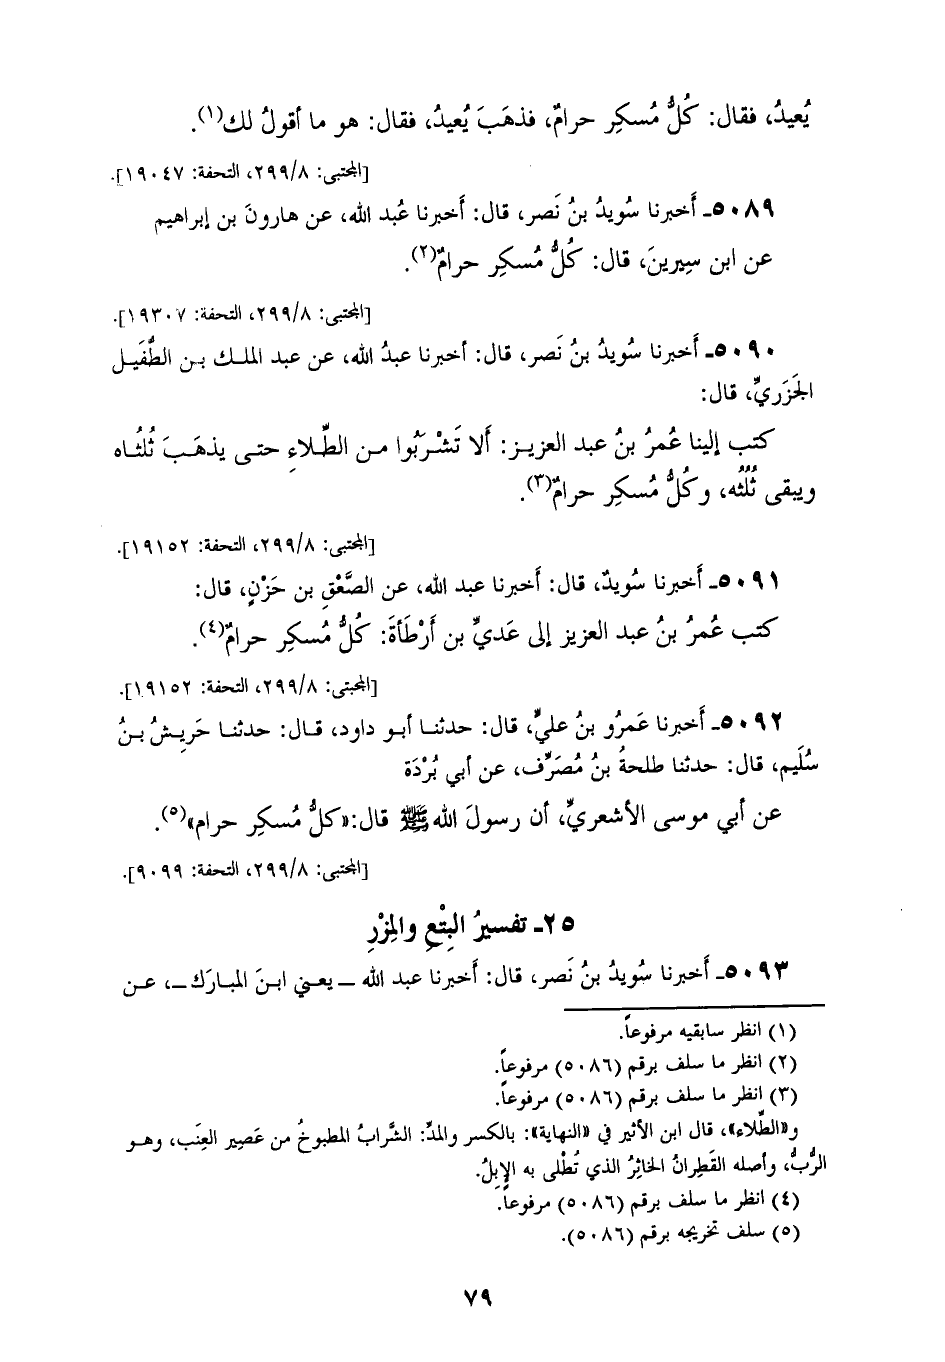 يُعيدُ، فقال: كُلُّ مُسكِرٍ حرامٌ، فذهَبَ يُعيدُ، فقال: هو ما أقولُ لك(١).
[المجتبى: ٢٩٩/٨، التحفة: ١٩٠٤٧].
٥٠٨٩ـ أخبرنا سُويدُ بنُ نَصر، قال: أَخبرنا عُبد الله، عن هارونَ بن إبراهيم
عن ابن سِيرينَ، قال: كُلُّ مُسكِرٍ حرامٌ(٢).
[المجتبى: ٢٩٩/٨، التحفة: ١٩٣٠٧].
٥٠٩٠ـ أَخبرنا سُويدُ بنُ نَصر، قال: أخبرنا عبدُ الله، عن عبد الملك بن الطُّفَيل
الجَزَريِّ، قال:
كتب إلينا عُمرُ بنُ عبد العزيز: أَلا تَشْرَبُوا من الطِّلاءِ حتى يذهَبَ ثُلثُاه
ويبقى ثُلُثُه، وكُلُّ مُسكِرٍ حرامٌ(٣).
[المجتبى: ٢٩٩/٨، التحفة: ١٩١٥٢].
٥٠٩١ـ أَخبرنا سُويدٌ، قال: أَخبرنا عبد الله، عن الصَّعْقِ بن حَزْنٍ، قال:
كتب عُمرُ بنُ عبد العزيز إلى عَديِّ بن أَرْطَأةَ: كُلُّ مُسكِرٍ حرامٌ(٤).
[المجبتى: ٢٩٩/٨، التحفة: ١٩١٥٢].
٥٠٩٢ـ أَخبرنا عَمرُو بنُ عليٍّ، قال: حدثنا أبو داود، قال: حدثنا حَرِيشُ بنُ
سُلَيم، قال: حدثنا طلحةُ بنُ مُصَرِّف، عن أبي بُرْدَة
عن أبي موسى الأشعريِّ، أن رسولَ الله ﷺ قال:«كلُّ مُسكِرٍ حرام»(٥).
[المجتبى: ٢٩٩/٨، التحفة: ٩٠٩٩].
٢٥ـ تفسيرُ البِتْعِ والمِزْرِ
٥٠٩٣ـ أَخبرنا سُويدُ بنُ نَصر، قال: أَخبرنا عبد الله ــ يعني ابنَ المبارَك ــ، عن
(١) انظر سابقيه مرفوعاً.
(٢) انظر ما سلف برقم (٥٠٨٦) مرفوعاً.
(٣) انظر ما سلف برقم (٥٠٨٦) مرفوعاً.
و«الطِّلاء»، قال ابن الأثير في «النهاية»: بالكسر والمدِّ: الشَّرابُ المطبوخُ من عَصير العِنَب، وهو
الرُّبُّ، وأصله القَطِرانُ الخاثِرُ الذي تُطْلى به الإبِلُ.
(٤) انظر ما سلف برقم (٥٠٨٦) مرفوعاً.
(٥) سلف تخريجه برقم (٥٠٨٦).
٧٩